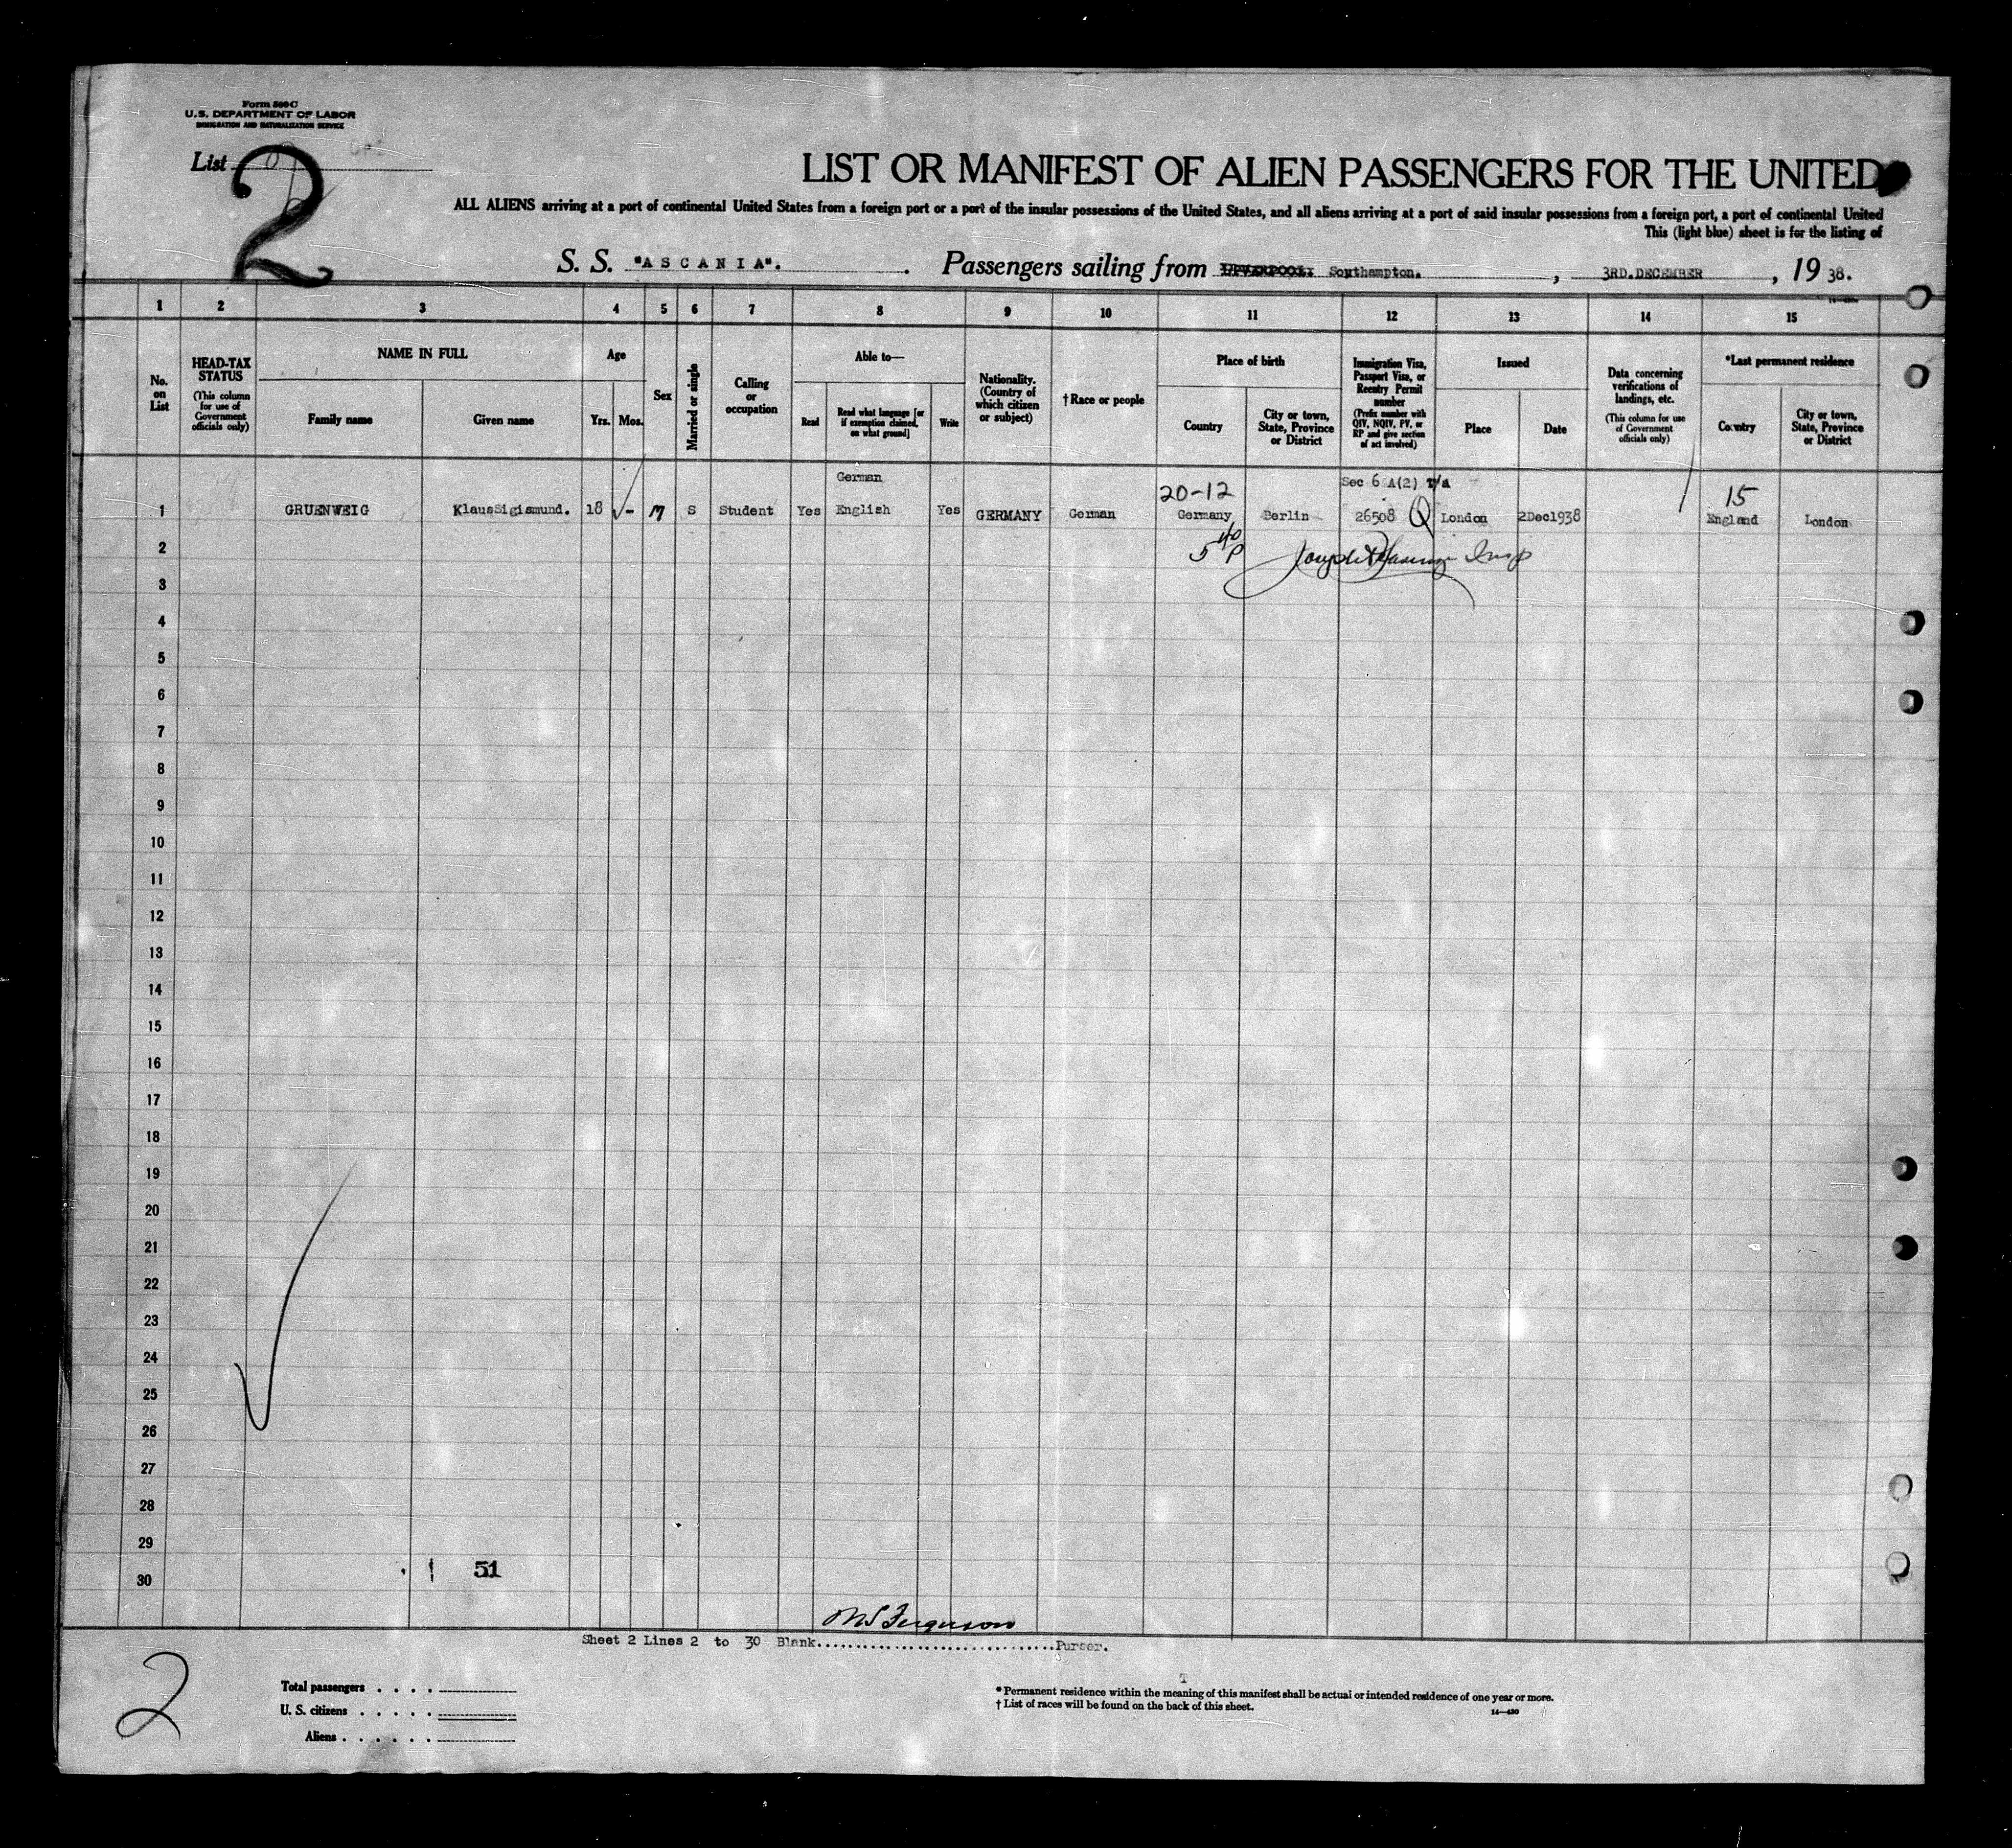 Form 500 C
U.S. DEPARTMENT OF LABOR
IMMIGRATION AND NATURALIZATION SERVICE
List
2
LIST OR MANIFEST OF ALIEN PASSENGERS FOR THE UNITED
ALL ALIENS arriving at a port of continental United States from a foreign port or a port of the insular possessions of the United States, and all aliens arriving at a port of said insular possessions from a foreign port, a port of continental United
This (light blue) sheet is for the listing of
S. S. "ASCANIA". Passengers sailing from LIVERPOOL: Southampton. , 3RD.DECEMBER , 19 38.
1 2 3 4 5 6 7 8 9 10 11 12 13 14 15
No. on List
HEAD-TAX STATUS
(This column for use of Government officials only)
NAME IN FULL
Family name
Given name
Age
Yrs. Mos.
Sex
Married or single
Calling or occupation
Able to—
Read
Read what language [or if exemption claimed, on what ground]
Write
Nationality. (Country of which citizen or subject)
†Race or people
Place of birth
Country
City or town, State, Province or District
Immigration Visa, Passport Visa, or Reentry Permit number
(Prefix number with QIV, NQIV, PV, or RP and give section of act involved)
Issued
Place
Date
Data concerning verifications of landings, etc.
(This column for use of Government officials only)
*Last permanent residence
Country
City or town, State, Province or District
German Sec 6 A(2) T/A
20-12 15
1 GRUENWEIG Klaus Sigismund. 18 - M S Student Yes English Yes GERMANY German Germany Berlin 26508 Q London 2Dec1938 England London
2 5 40 P Insp
3
4
5
6
7
8
9
10
11
12
13
14
15
16
17
18
19
20
21
22
23
24
25
26
27
28
29
51
30
Ferguson
Sheet 2 Lines 2 to 30 Blank..............................Purser.
2
Total passengers . . . .
U. S. citizens . . . . .
Aliens . . . . . .
T
*Permanent residence within the meaning of this manifest shall be actual or intended residence of one year or more.
†List of races will be found on the back of this sheet.
14—430